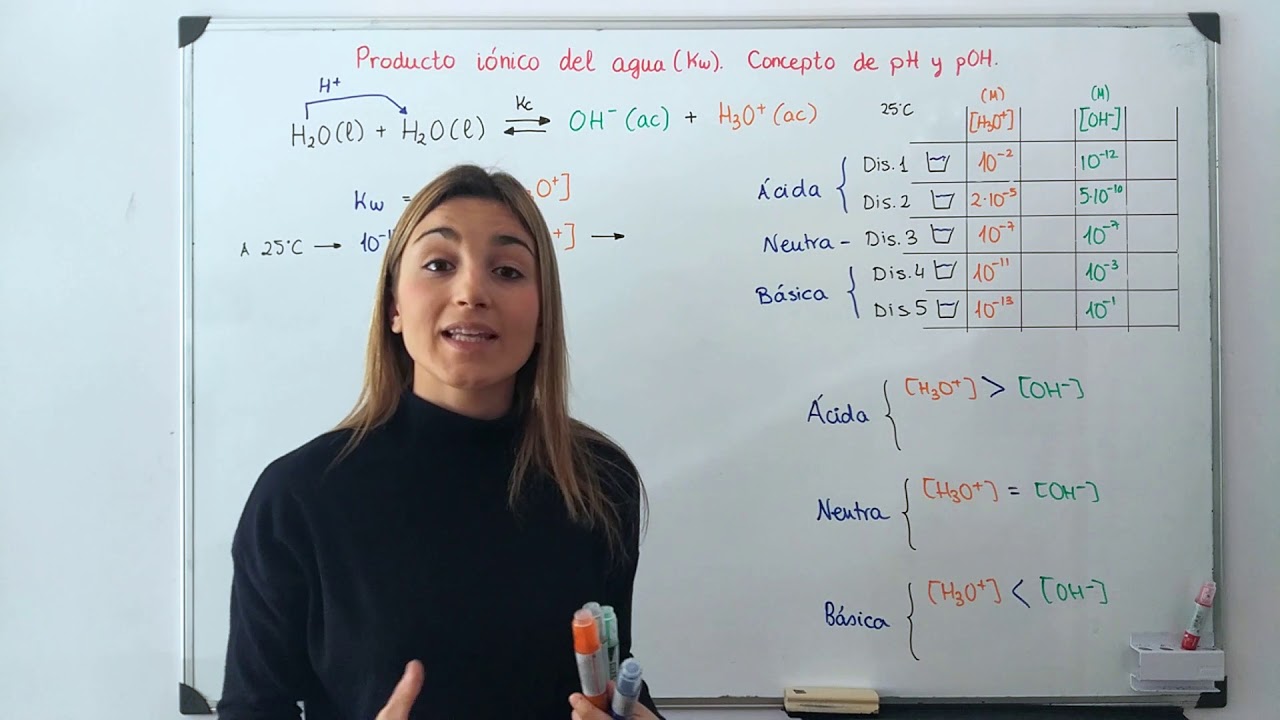 Producto iónico del agua (Kw). Concepto de pH y pOH.
H⁺
H₂O(l) + H₂O(l) ⇌ OH⁻(ac) + H₃O⁺(ac)
Kc
Kw =
A 25°C → 10⁻¹
→
25°C
(M) (M)
[H₃O⁺] [OH⁻]
Ácida { Dis.1 10⁻² 10⁻¹²
Dis.2 2·10⁻⁵ 5·10⁻¹⁰
Neutra - Dis.3 10⁻⁷ 10⁻⁷
Básica { Dis.4 10⁻¹¹ 10⁻³
Dis 5 10⁻¹³ 10⁻¹
Ácida { [H₃O⁺] > [OH⁻]
Neutra { [H₃O⁺] = [OH⁻]
Básica { [H₃O⁺] < [OH⁻]